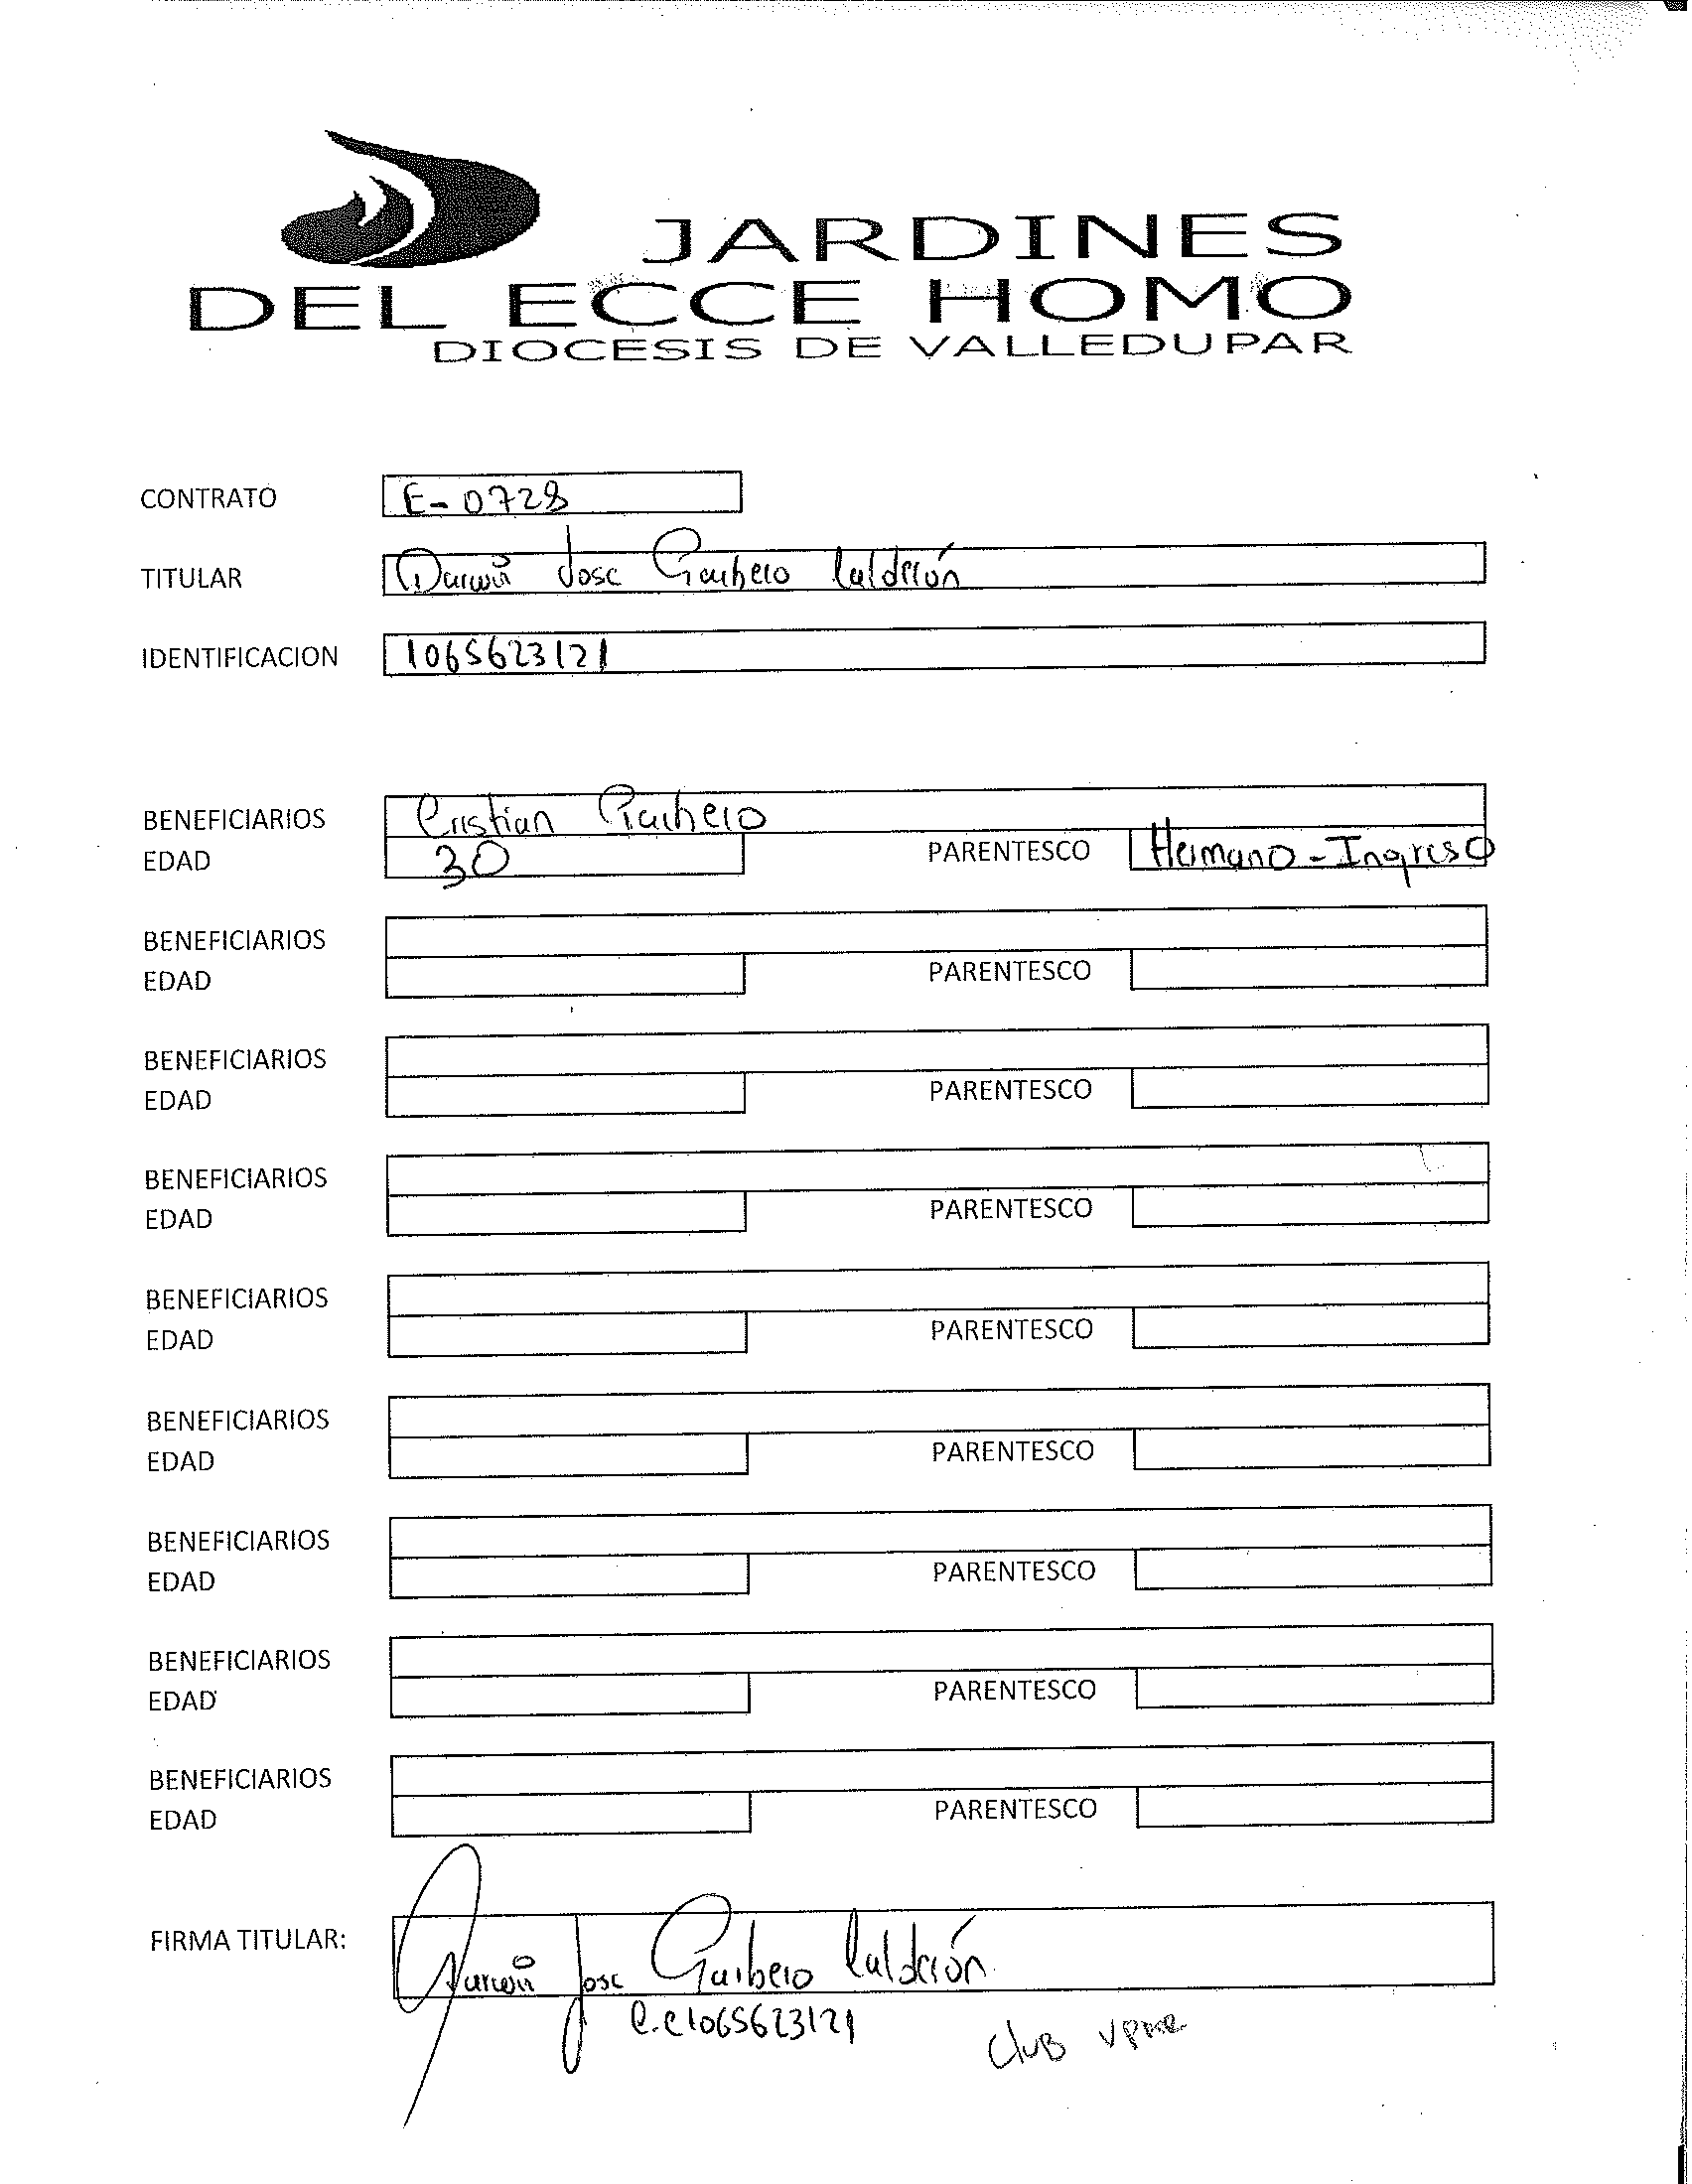 JARDINES
DEL ECCE HOMO
DIOCESIS DE VALLEDUPAR
CONTRATO E-0728
TITULAR Darwin Jose Calderón
IDENTIFICACION 1065623121
BENEFICIARIOS Cristian
EDAD 30 PARENTESCO Hermano - Ingreso
BENEFICIARIOS
EDAD PARENTESCO
BENEFICIARIOS
EDAD PARENTESCO
BENEFICIARIOS
EDAD PARENTESCO
BENEFICIARIOS
EDAD PARENTESCO
BENEFICIARIOS
EDAD PARENTESCO
BENEFICIARIOS
EDAD PARENTESCO
BENEFICIARIOS
EDAD PARENTESCO
BENEFICIARIOS
EDAD PARENTESCO
FIRMA TITULAR: Darwin Jose Calderón
C.C 1065623121
Club